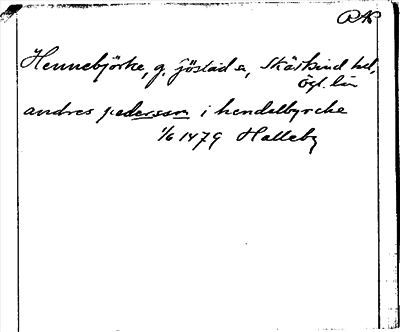 RAP
Hennebjörke, g. Jöstad s, Skärkind hd,
Ögl. län
andres pedersson i hendelbyrcke
1/6 1479 Halleby